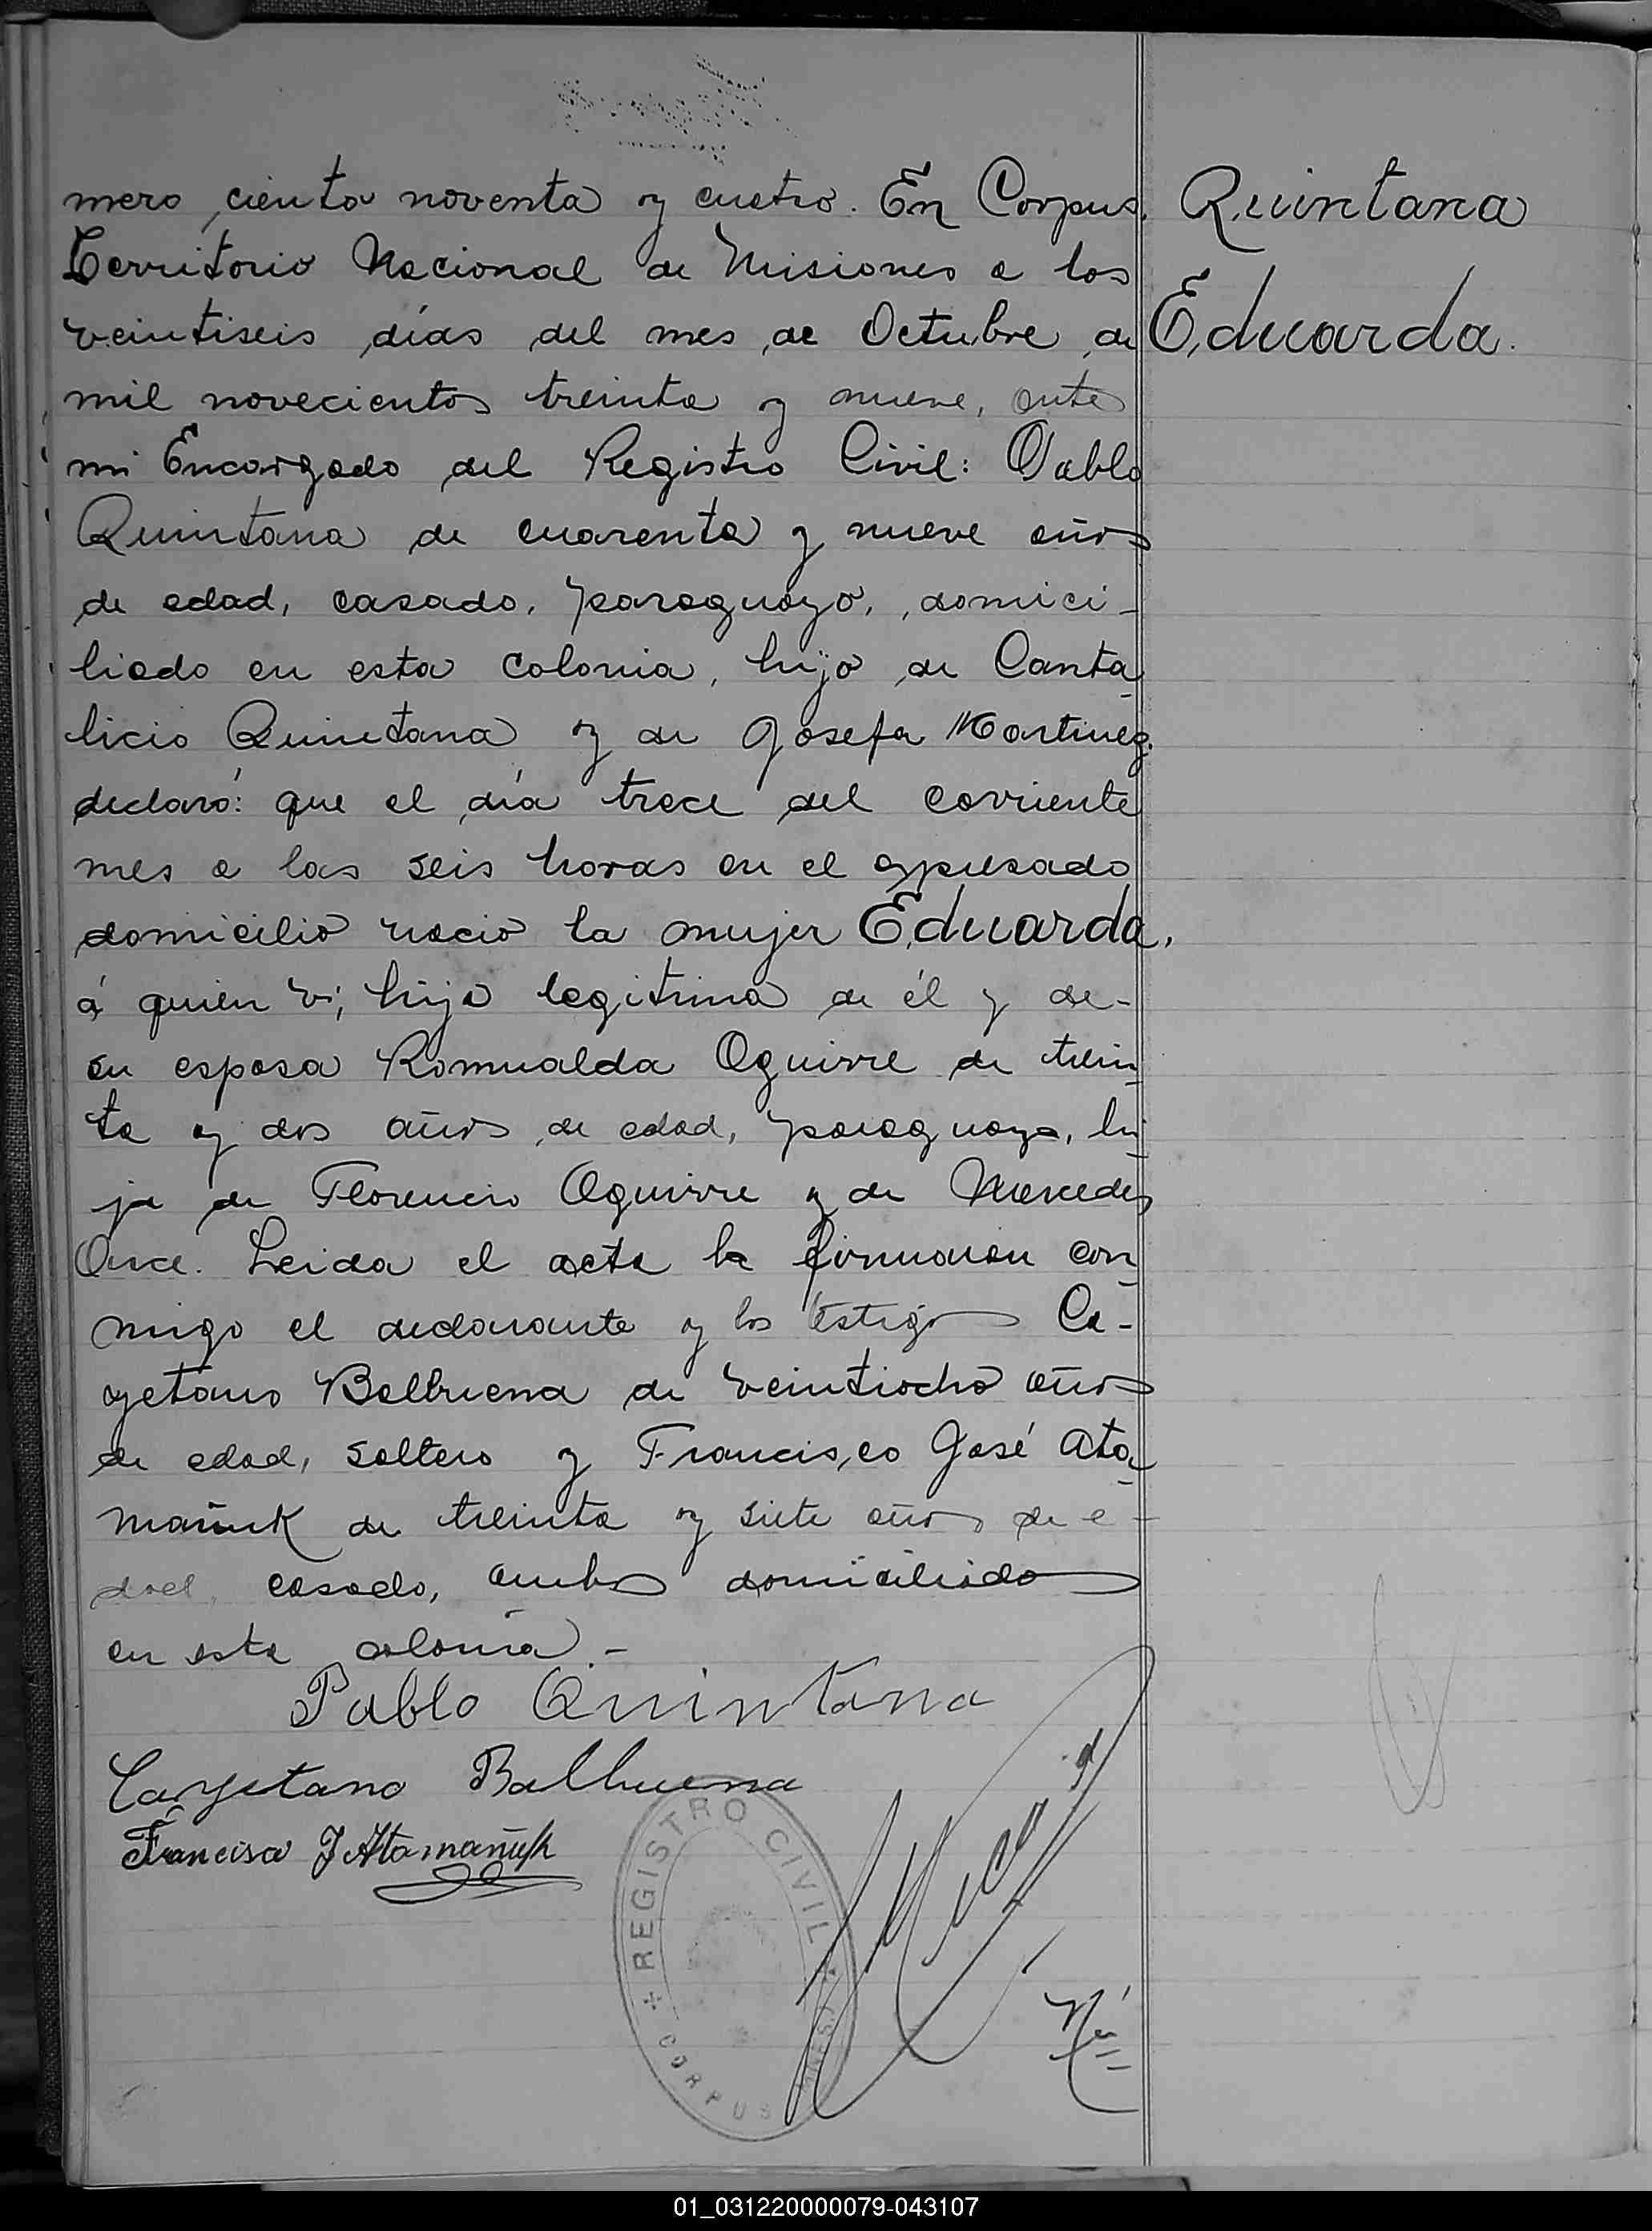 mero ciento noventa y cuatro. En Corpus,
Territorio Nacional de Misiones a los
veintiseis días del mes de Octubre de
mil novecientos treinta y nueve, ante
mi Encargado del Registro Civil: Pablo
Quintana de cuarenta y nueve años
de edad, casado, paraguayo, domici-
liado en esta colonia, hijo de Canta
licio Quintana y de Josefa Martinez.
declaró: que el día trece del corriente
mes a las seis horas en el expresado
domicilio nació la mujer Eduarda,
á quien vi; hija legitima de él y de-
su esposa Romualda Aguirre de trein
ta y dos años de edad, paraguaya, hi
ja de Florencio Aguirre y de Mercedes
Leida el acta la firmaron con
migo el declarante y los testigos Ca-
yetano Balbuena de veintiocho años
de edad, soltero y Francisco José Ata
mañuk de treinta y siete años de e-
dad, casado, ambos domiciliados
en esta colonia.-
Quintana
Eduarda.
Pablo Quintana
Cayetano Balbuena
Francisco J Atamañuk
REGISTRO CIVIL
CORPUS
Nú
01_031220000079-043107